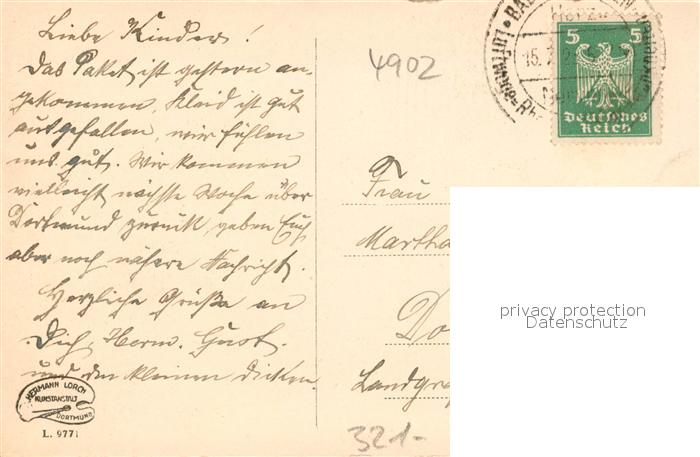 Liebe Kinder!
Das Paket ist gestern an-
gekommen, Kleid ist gut
ausgefallen, wir fühlen
uns gut. Wir kommen
vielleicht nächste Woche über
Dortmund zurück, geben Euch
aber noch nähere Nachricht.
Herzliche Grüße an
Dich, Herm. Gust.
und den kleinen Dicken.
HERMANN LORCH
KUNSTANSTALT
DORTMUND
L. 9771
4902
15.
5 5
Deutsches
Reich
Frau
Martha
Do
Landgra
321-
privacy protection
Datenschutz